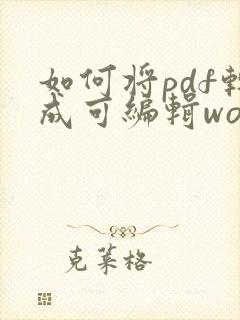 如何将pdf转
成可编辑wo
克莱格